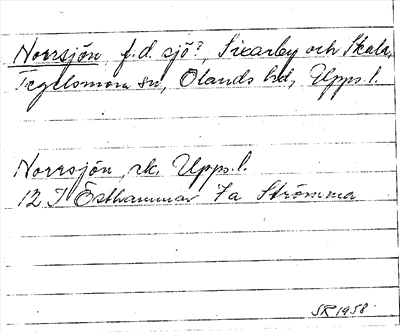 Norrsjön, f.d. sjö?, Sixarby och Skala,
Tegelsmora sn, Olands hd, Upps. l.
Norrsjön, rk, Upps. l.
12 I Östhammar 7a Strömma
SR 1958